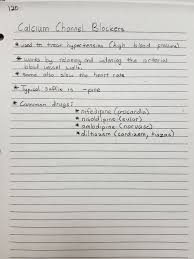 120
Calcium Channel Blockers
* used to treat hypertension (high blood pressure)
* works by relaxing and widening the arterial
blood vessel walls
* some also slow the heart rate
* Typical suffix is -pine
* Common drugs:
* nifedipine (procardia)
* nisoldipine (sular)
* amlodipine (norvasc)
* diltiazem (cardizem, tiazac)